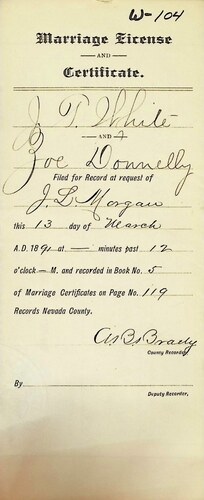 W-104
Marriage License
—AND—
Certificate.
J. T. White
—AND—
Zoe Donnelly
Filed for Record at request of
J. L. Morgan
this 13 day of March
A.D. 1891 at — minutes past 12
o'clock — M. and recorded in Book No. 5
of Marriage Certificates on Page No. 119
Records Nevada County.
A. B. Brady
County Recorder
By
Deputy Recorder,